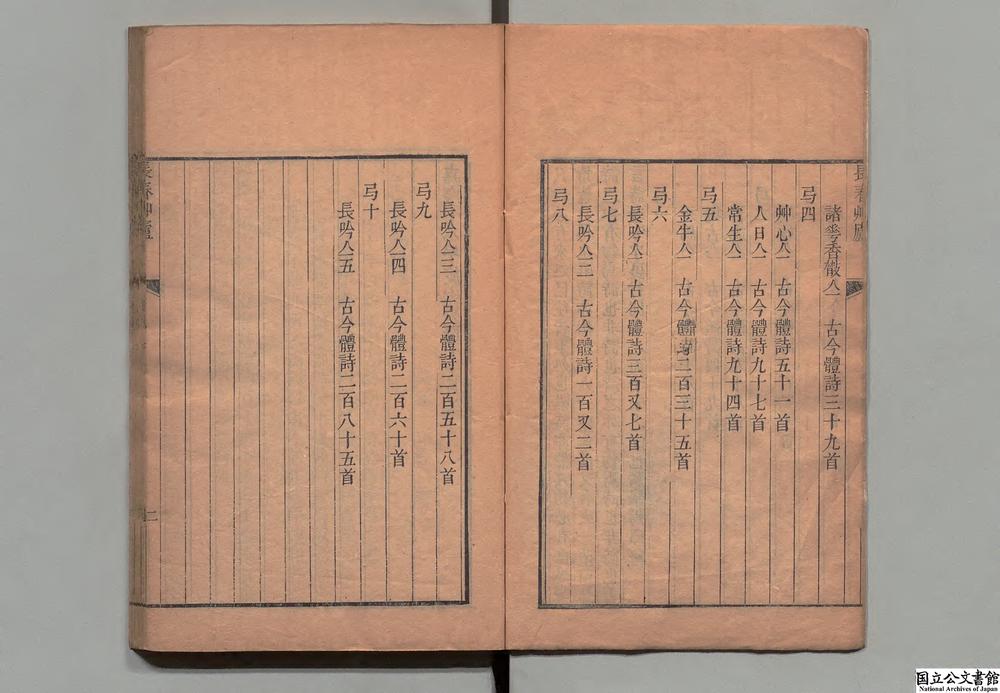 長春艸廬
諸 香 亼 古今體詩三十九首
弓四
艸心亼 古今體詩五十一首
人日亼 古今體詩九十七首
常生亼 古今體詩九十四首
弓五
金牛亼 古今體詩二百三十五首
弓六
長吟亼一 古今體詩三百又七首
弓七
長吟亼二 古今體詩一百又二首
弓八
長吟亼三 古今體詩二百五十八首
弓九
長吟亼四 古今體詩二百六十首
弓十
長吟亼五 古今體詩二百八十五首
長春艸廬
二
国立公文書館
National Archives of Japan